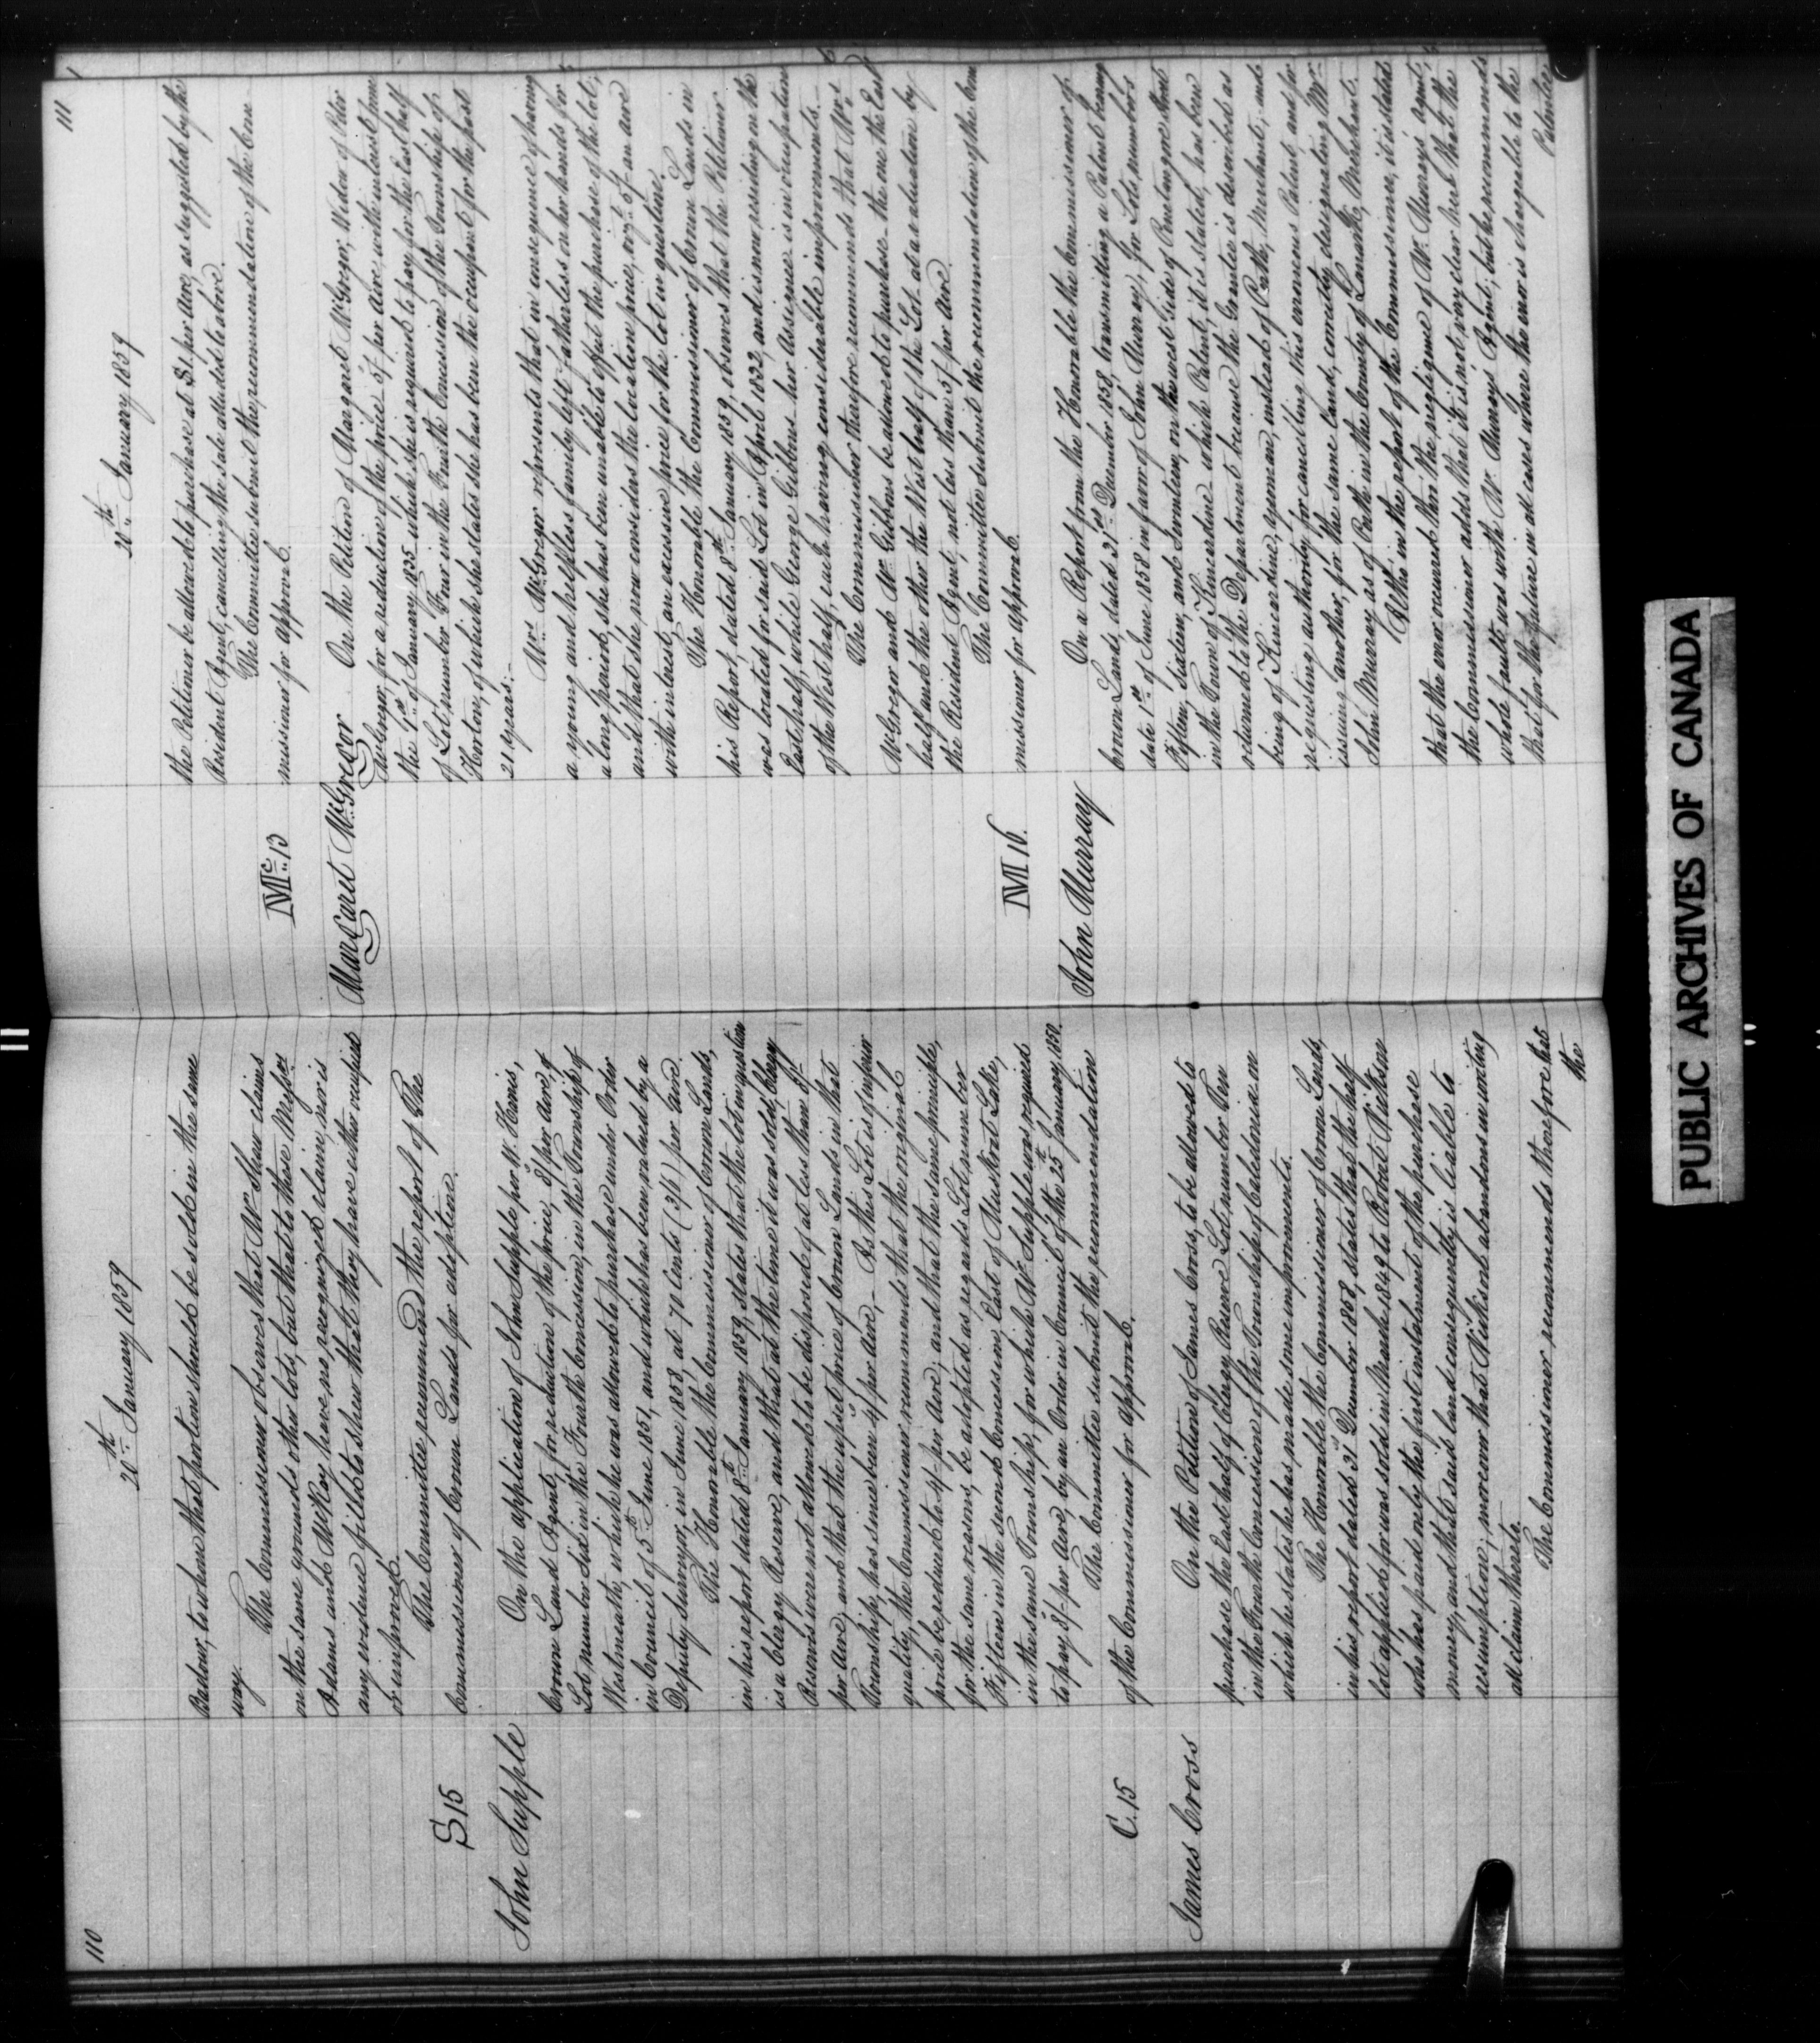 110
20th January 1859
Radour, to whom that portion should be sold in the same
way.
The Commissioner observes that Mr Shaw claims
on the same grounds other lots, but that to those Messrs
Adams and McKay have no recognized claim, nor is
any evidence filed to shew that they have either occupied
or improved.
The Committee recommend the report of The
Commissioner of Crown Lands for adoption.
S 15
John Supple
On the application of John Supple per W. Harris,
Crown Land Agent, for reduction of the price, 8/ per Acre, of
Lot number Six in the Fourth Concession, in the Township of
Westmeath, which he was allowed to purchase under Order
in Council of 5th June 1851, and which has been valued by a
Deputy Surveyor, in June 1858, at 70 Cents (3/6) per Acre.
The Honorable the Commissioner of Crown Lands,
in his report dated 8th January 1859, states that the lot in question
is a Clergy Reserve, and that at the time it was sold, Clergy
Reserves were not allowed to be disposed of at less than 8/-
per Acre, and that the upset price of Crown Lands in that
Township, has since been 4/ per Acre,- As this Lot is of inferior
quality, the Commissioner recommends that the original
price be reduced to 4/- per Acre; and that the same principle,
for the same reasons, be adopted as regards Lot number
Fifteen in the second Concession, East of Muskrat Lake,
in the same Township, for which Mr Supple was required
to pay 8/- per Acre, by an Order in Council of the 25th January, 1850.
The Committee submit the recommendation
of the Commissioner for approval.
C. 15
James Cross
On the Petition of James Cross, to be allowed to
purchase the East half of Clergy Reserve Lot number Ten
in the Fourth Concession of the Township of Caledonia on
which he states he has made some improvements.
The Honorable the Commissioner of Crown Lands,
in his report dated 31st December 1858, states that the half
lot applied for was sold in March 1849 to Robert Dickson
who has paid only the first instalment of the purchase
money, and that said land consequently is liable to
resumption; moreover that Dickson abandons in writing
all claim thereto.
The Commissioner recommends therefore that
the
111
20th January 1859
the Petitioner be allowed to purchase at $1 per Acre, as suggested by the
Resident Agent, cancelling the sale alluded to above.
The Committee submit the recommendation of the Com-
missioner for approval.
Mc 13
Margaret McGregor
On the Petition of Margaret McGregor, Widow of Peter
McGregor, for a reduction of the price - 5/ per Acre, with interest from
the 1st of January 1835 which she is required to pay for the East half
of Lot number Four in the Fourth Concession of the Township of
Horton, of which she states she has been the occupant for the past
21 years.-
Mrs McGregor represents that in consequence of having
a young and helpless family left fatherless on her hands for
a long period, she has been unable to effect the purchase of the lot,
and that she now considers the location price, viz: 5/- an Acre
with interest, an excessive price for the lot in question.
The Honorable the Commissioner of Crown Lands in
his Report, dated 8th January 1859, observes that the Petitioner
was located for said Lot in April 1832, and is now residing on the
East half, while George Gibbons her Assignee is in occupation
of the West half, each having considerable improvements.-
The Commissioner therefore recommends that Mrs
McGregor and Mr Gibbons be allowed to purchase - the one the East
half and the other the West half of the Lot at a valuation by
the Resident Agent, not less than 5/ per Acre.
The Committee submit the recommendation of the Com
missioner for approval.
M 16.
John Murray
On a Report from the Honorable the Commissioner of
Crown Lands, dated 31st December 1858, transmitting a Patent bearing
date 1st of June 1858 in favor of John Murray, for Lots numbers
Fifteen, Sixteen, and Seventeen, on the west side of Penetangore Street
in the Town of Kincardine - which Patent, it is stated, has been
returned to the Department because the Grantee is described as
being of Kincardine, yeoman, instead of Perth, Merchant; and
requesting authority for cancelling this erroneous Patent, and for
issuing another, for the same land, correctly designating Mr
John Murray as of Perth in the County of Lanark, Merchant.
Altho in the report of the Commissioner, it is stated
that the error occurred thro' the negligence of Mr Murray's agent,
the Commissioner adds that it is not very clear but that the
whole fault was with Mr Murray's Agent; but he recommends
that for the future in all cases where the error is chargeable to the
Patentee
PUBLIC ARCHIVES OF CANADA